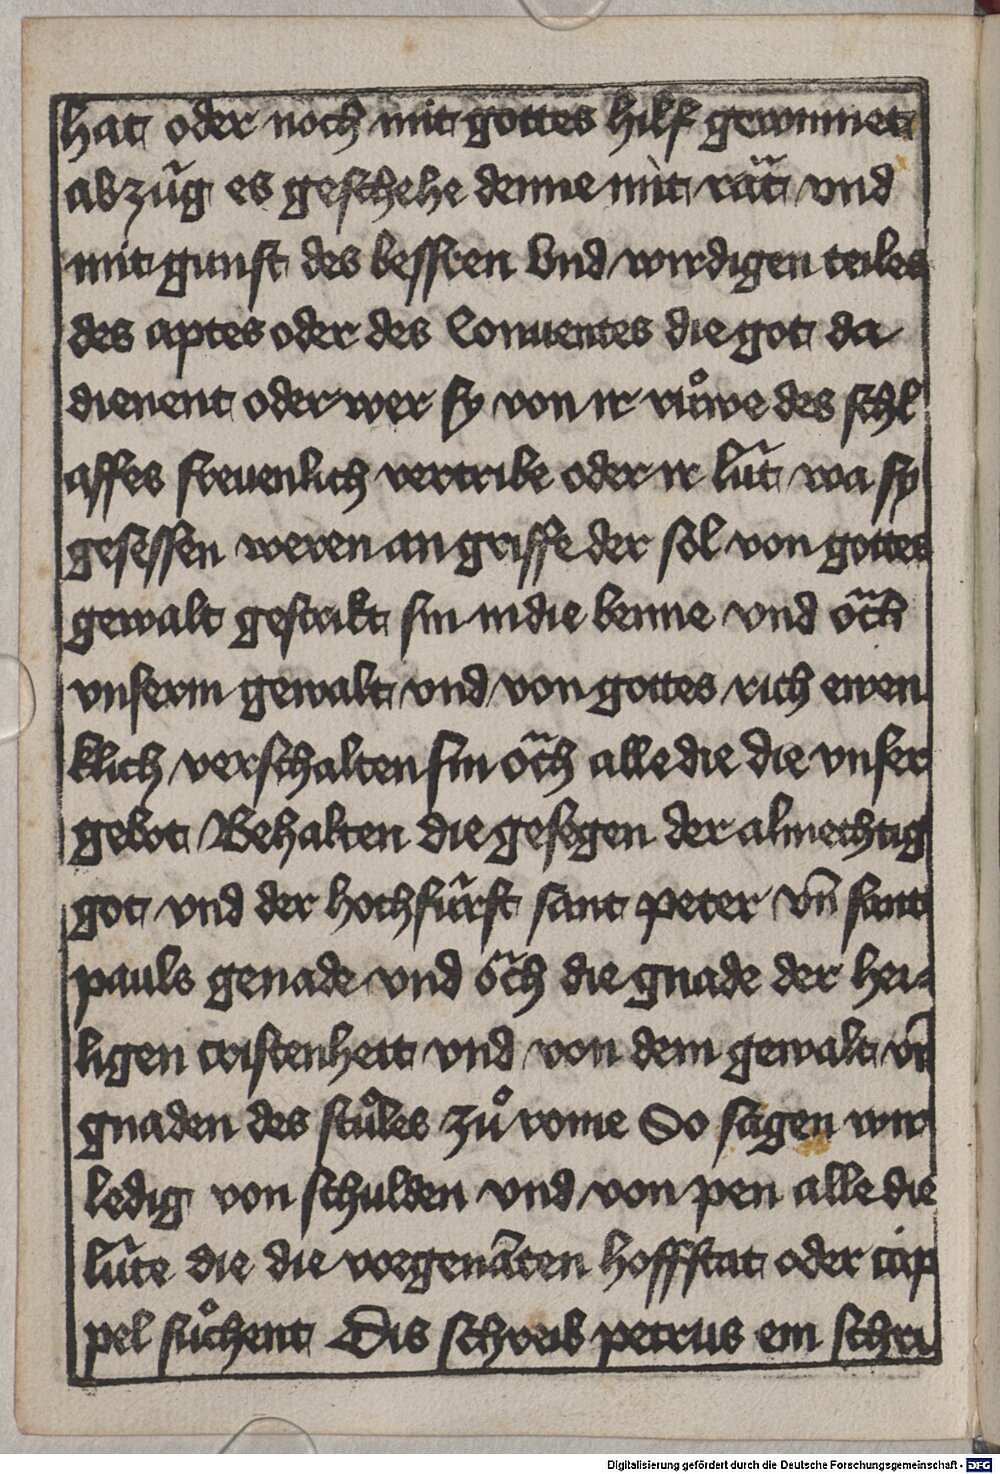 hat oder noch mit gottes hilf gewinnet
abzũg es geschehe denne mit rät vnd
mit gunst des bessren Vnd wirdigen teiles
des aptes oder des Conuentes die got da
dienent oder wer sy von ir růwe des schl
affes freuenlich vertribe oder ir lüt wa sy
gesessen weren an griffe der sol von gottes
gewalt gestrikt sin in die benne vnd öch
vnserm gewalt vnd von gottes rich ewen
klich verschalten sin öch alle die die vnser
gebot Behalten die gesegen der almechtig
got vnd der hochfürst sant peter vn̄ sant
pauls genade vnd öch die gnade der hei-
ligen cristenheit vnd von dem gewalt vn̄
gnaden des stůles zů rome So sagen wir
ledig von schulden vnd von pen alle die
lüte die die vorgenāten hoffstat oder cap
pel sůchent Dis schreib petrus ein schri
Digitalisierung gefördert durch die Deutsche Forschungsgemeinschaft - DFG